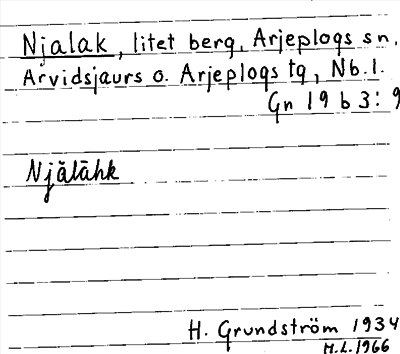 Njalak, litet berg, Arjeplogs sn.
Arvidsjaurs o. Arjeplogs tg, Nb. l.
Gn 19 b 3: 9
Njălāhk
H. Grundström 1934
M.L. 1966